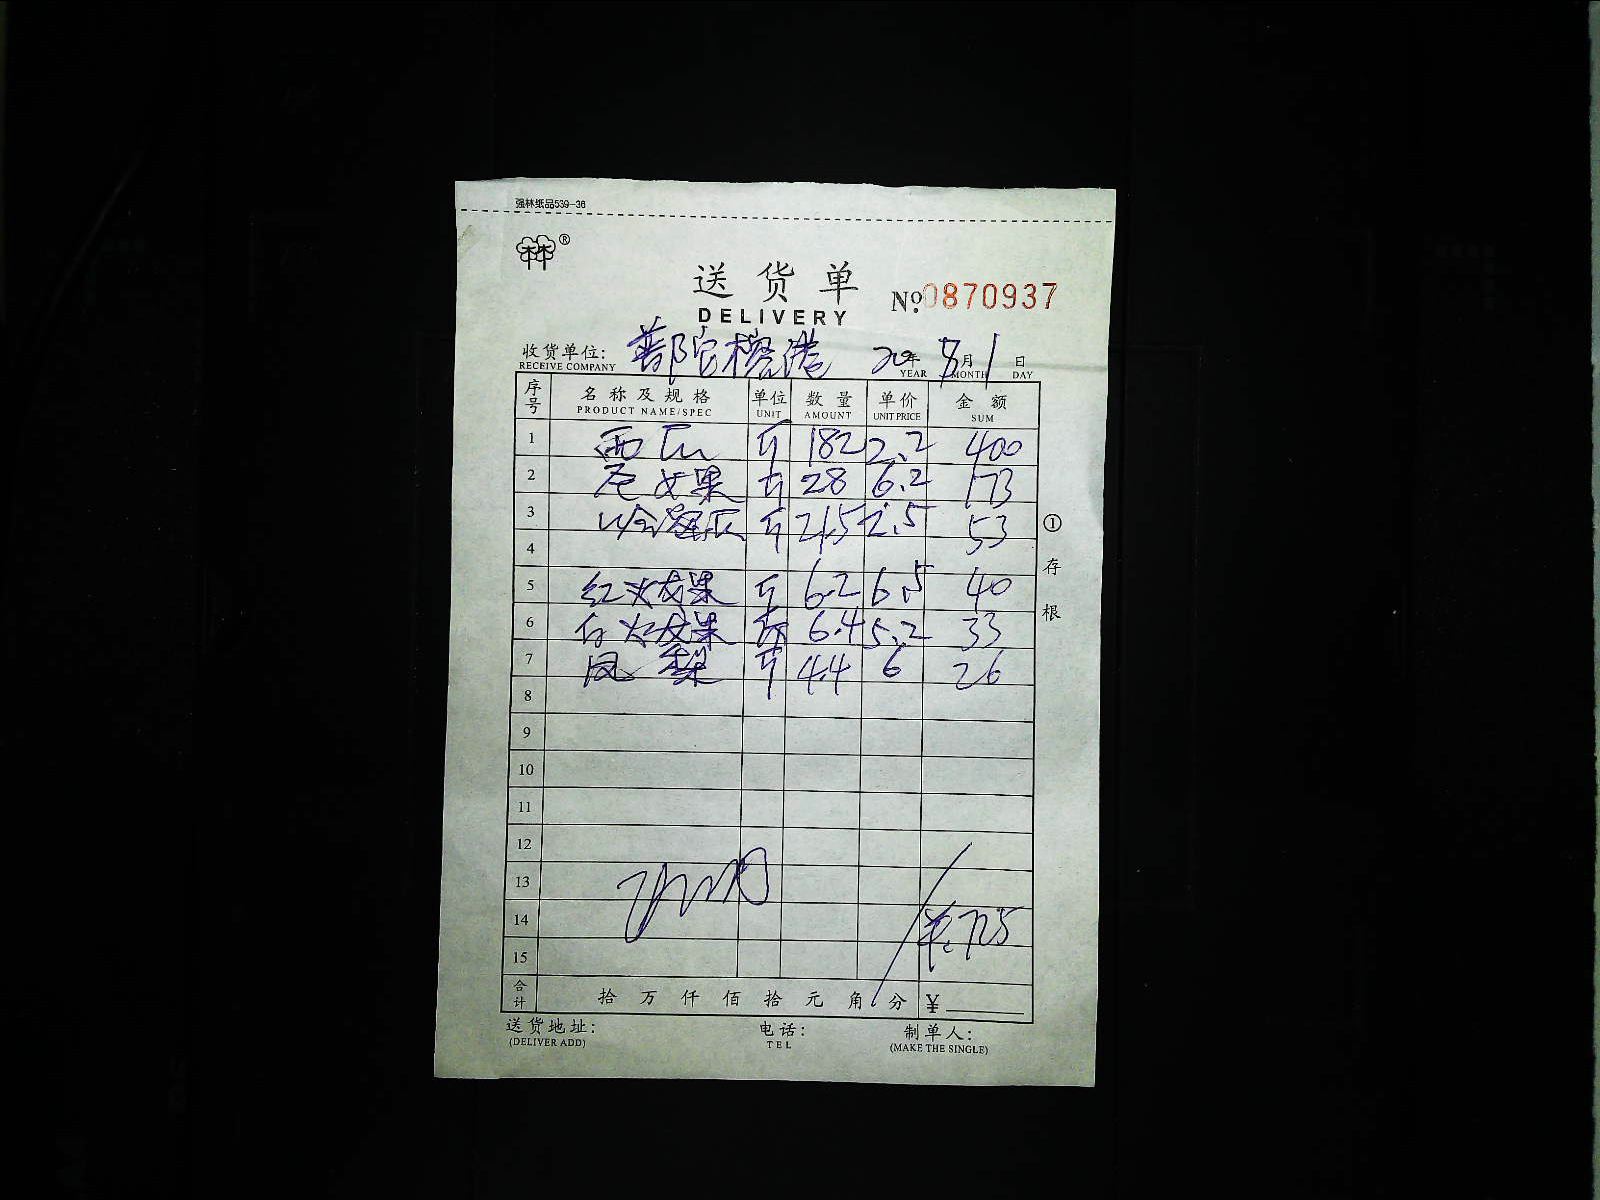 强林纸品539-36
林林®
送货单 No. 0870937
DELIVERY
收货单位: 普陀 年 8月1日
RECEIVE COMPANY YEAR MONTH DAY
序号 名称及规格 单位 数量 单价 金额
PRODUCT NAME/SPEC UNIT AMOUNT UNIT PRICE SUM
1 西瓜 斤 182 2.2 400
2 果 斤 28 6.2 173
3 哈密瓜 斤 21.5 2.5 53
4
5 红火龙果 斤 6.2 6.5 40
6 白火龙果 斤 6.4 5.2 33
7 凤梨 斤 4.4 6 26
8
9
10
11
12
13
14 ¥:725
15
合计 拾万仟佰拾元角分 ¥
①存根
送货地址: 电话: 制单人:
(DELIVER ADD) TEL (MAKE THE SINGLE)